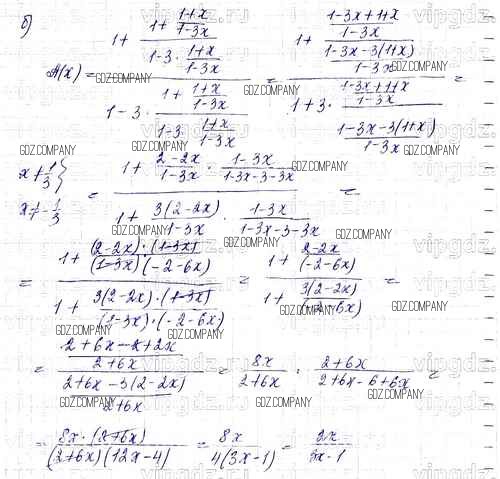 б)
A(x) = (1 + (1 + (1+x)/(1-3x))/(1-3·(1+x)/(1-3x)))/(1-3·(1 + (1+x)/(1-3x))/(1-3·(1+x)/(1-3x))) = (1 + ((1-3x+1+x)/(1-3x))/((1-3x-3(1+x))/(1-3x)))/(1+3·((1-3x+1+x)/(1-3x))/((1-3x-3(1+x))/(1-3x))) =
x≠1/3 }
x≠-1/3
= (1 + (2-2x)/(1-3x) · (1-3x)/(1-3x-3-3x))/(1 + 3(2-2x)/(1-3x) · (1-3x)/(1-3x-3-3x)) =
= (1 + (2-2x)·(1-3x)/((1-3x)(-2-6x)))/(1 + 3(2-2x)·(1-3x)/((1-3x)·(-2-6x))) = (1 + (2-2x)/(-2-6x))/(1 + 3(2-2x)/(-2-6x)) =
= ((2+6x-2+2x)/(2+6x))/((2+6x-3(2-2x))/(2+6x)) = 8x/(2+6x) · (2+6x)/(2+6x-6+6x) =
= 8x·(2+6x)/((2+6x)(12x-4)) = 8x/(4(3x-1)) = 2x/(3x-1)
GDZ.COMPANY
vipgdz.ru